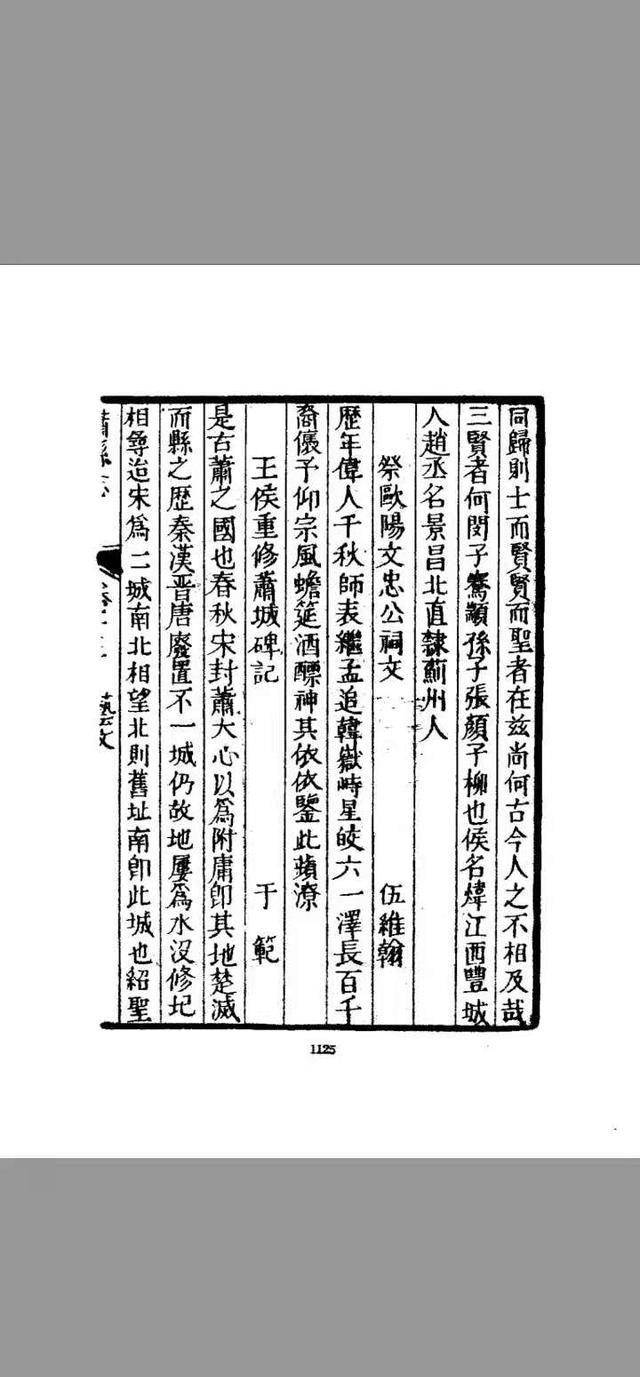 同歸則士而賢賢而聖者在兹尚何古今人之不相及哉
三賢者何閔子騫顓孫子張顏子柳也侯名煒江西豐城
人趙丞名景昌北直隸薊州人
祭歐陽文忠公祠文 伍維翰
歴年偉人千秋師表繼孟追韓嶽峙星皎六一澤長百千
裔儴予仰宗風蟾筵酒醥神其依依鑒此蘋潦
王侯重修蕭城碑記 于範
是古蕭之國也春秋宋封蕭大心以為附庸即其地楚滅
而縣之歴秦漢晋唐廢置不一城仍故地屢為水没修圮
相尋迨宋為二城南北相望北則舊址南即此城也紹聖
藝文
1125